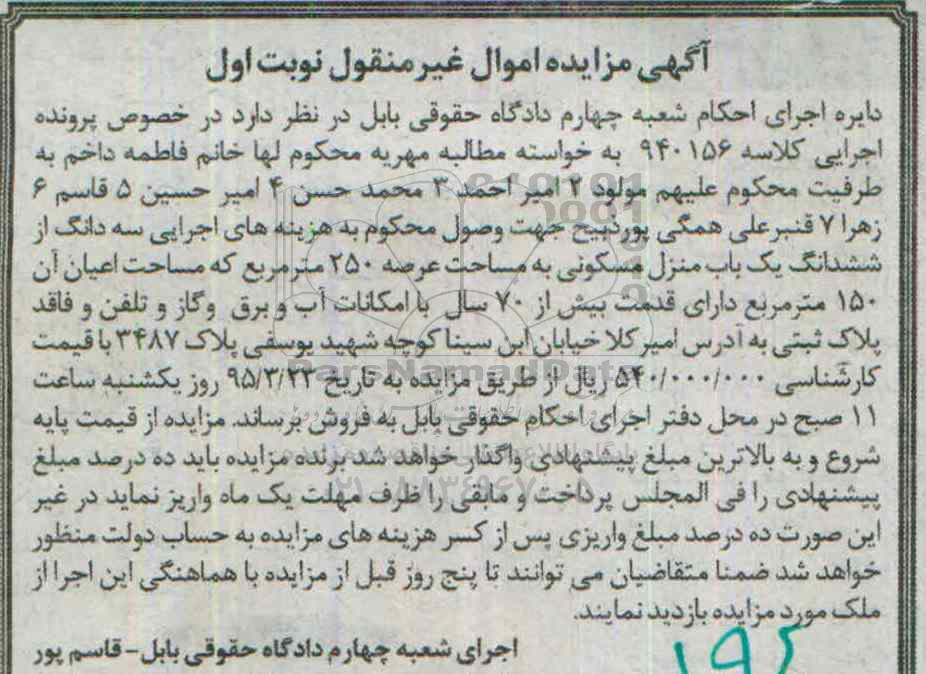 آگهی مزایده اموال غیر منقول نوبت اول
دایره اجرای احکام شعبه چهارم دادگاه حقوقی بابل در نظر دارد در خصوص پرونده
اجرایی کلاسه ۹۴۰۱۵۶ به خواسته مطالبه مهریه محکوم لها خانم فاطمه داخم به
طرفیت محکوم علیهم مولود ۲ امیر احمد ۳ محمد حسن ۴ امیر حسین ۵ قاسم ۶
زهرا ۷ قنبرعلی همگی پورذبیح جهت وصول محکوم به هزینه های اجرایی سه دانگ از
ششدانگ یک باب منزل مسکونی به مساحت عرصه ۲۵۰ مترمربع که مساحت اعیان آن
۱۵۰ مترمربع دارای قدمت بیش از ۷۰ سال با امکانات آب و برق وگاز و تلفن و فاقد
پلاک ثبتی به آدرس امیر کلا خیابان ابن سینا کوچه شهید یوسفی پلاک ۳۴۸۷ با قیمت
کارشناسی ۵۴۰/۰۰۰/۰۰۰ ریال از طریق مزایده به تاریخ ۹۵/۳/۲۳ روز یکشنبه ساعت
۱۱ صبح در محل دفتر اجرای احکام حقوقی بابل به فروش برساند. مزایده از قیمت پایه
شروع و به بالاترین مبلغ پیشنهادی واگذار خواهد شد برنده مزایده باید ده درصد مبلغ
پیشنهادی را فی المجلس پرداخت و مابقی را ظرف مهلت یک ماه واریز نماید در غیر
این صورت ده درصد مبلغ واریزی پس از کسر هزینه های مزایده به حساب دولت منظور
خواهد شد ضمنا متقاضیان می توانند تا پنج روز قبل از مزایده با هماهنگی این اجرا از
ملک مورد مزایده بازدید نمایند.
اجرای شعبه چهارم دادگاه حقوقی بابل - قاسم پور
ParsNamadData